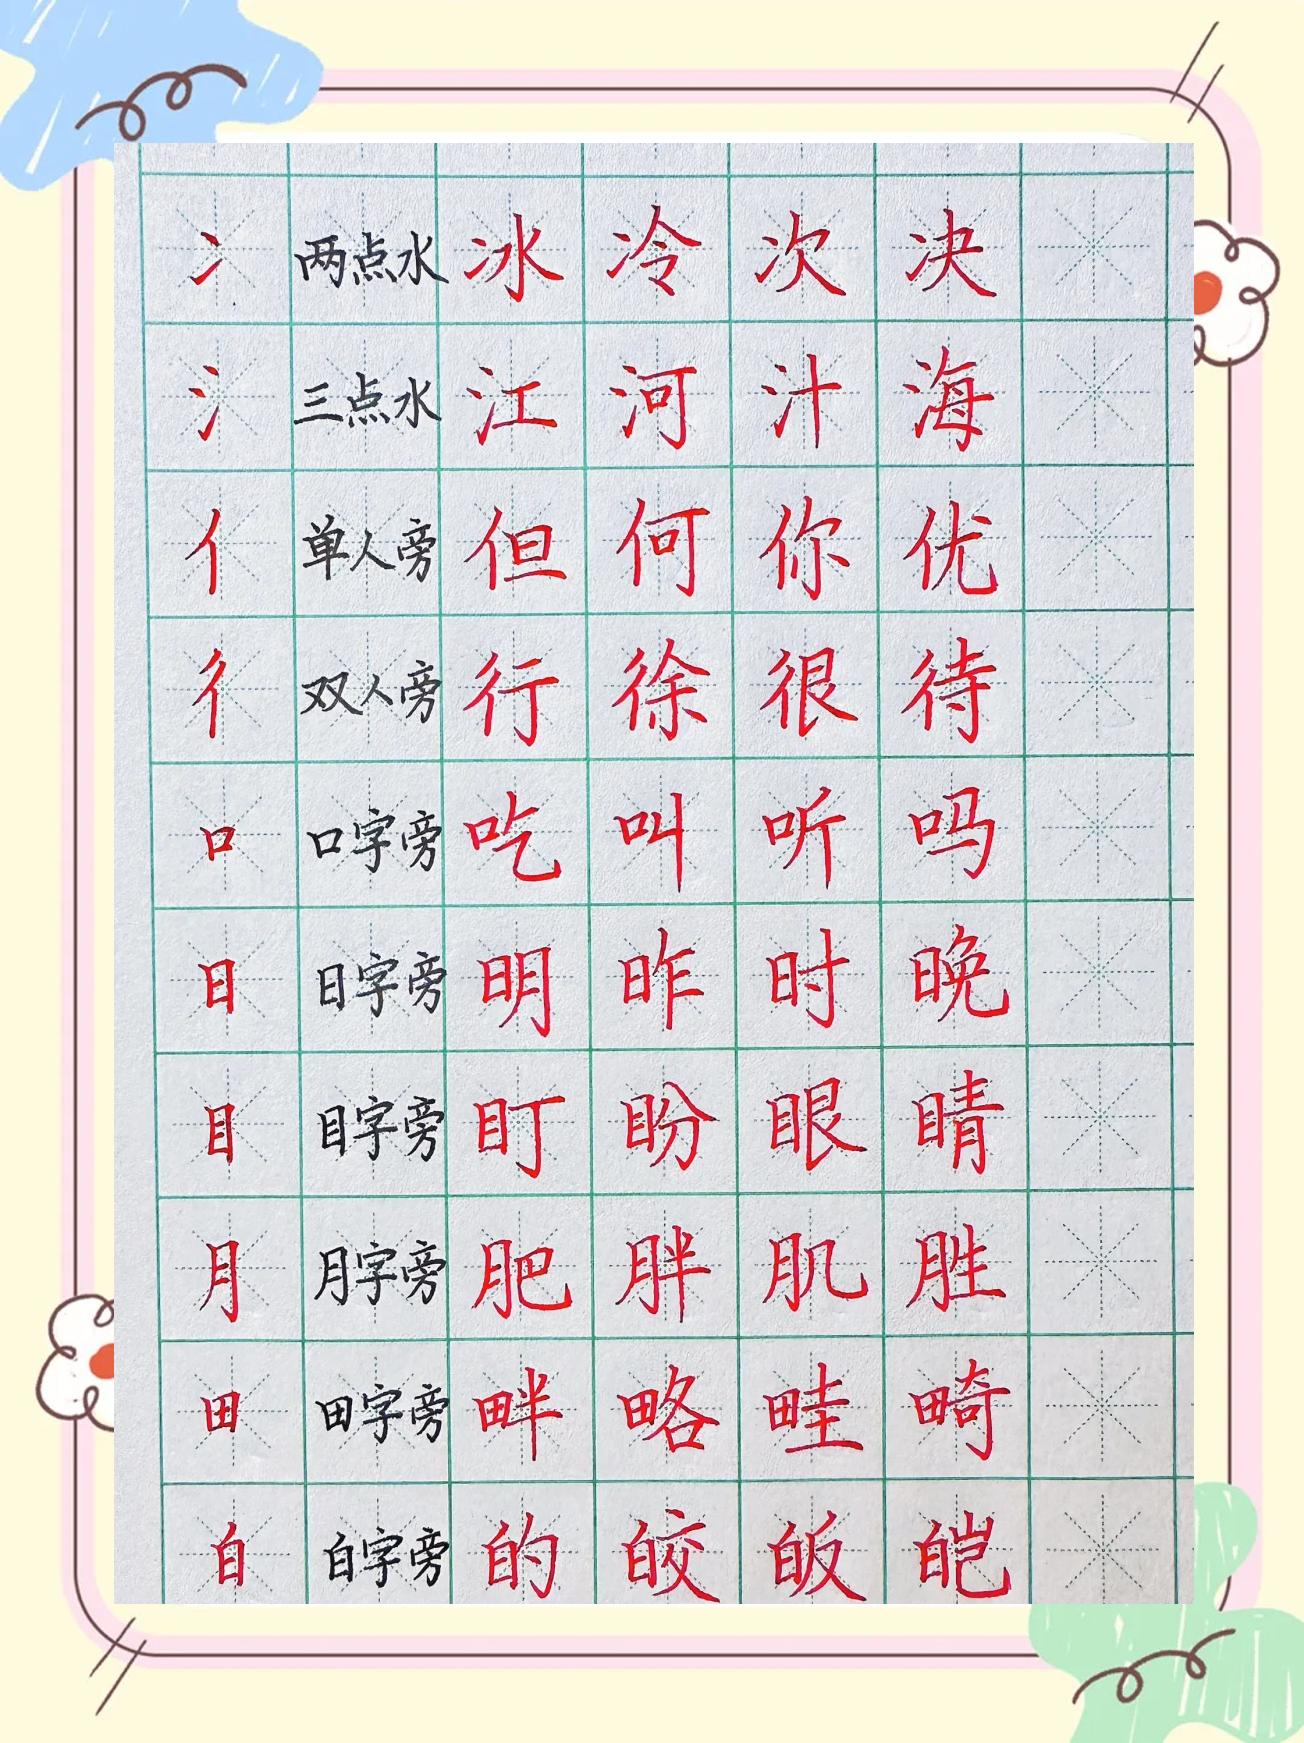 冫 两点水 冰 冷 次 决
氵 三点水 江 河 汁 海
亻 单人旁 但 何 你 优
彳 双人旁 行 徐 很 待
口 口字旁 吃 叫 听 吗
日 日字旁 明 昨 时 晚
目 目字旁 盯 盼 眼 睛
月 月字旁 肥 胖 肌 胜
田 田字旁 畔 略 畦 畸
白 白字旁 的 皎 皈 皑